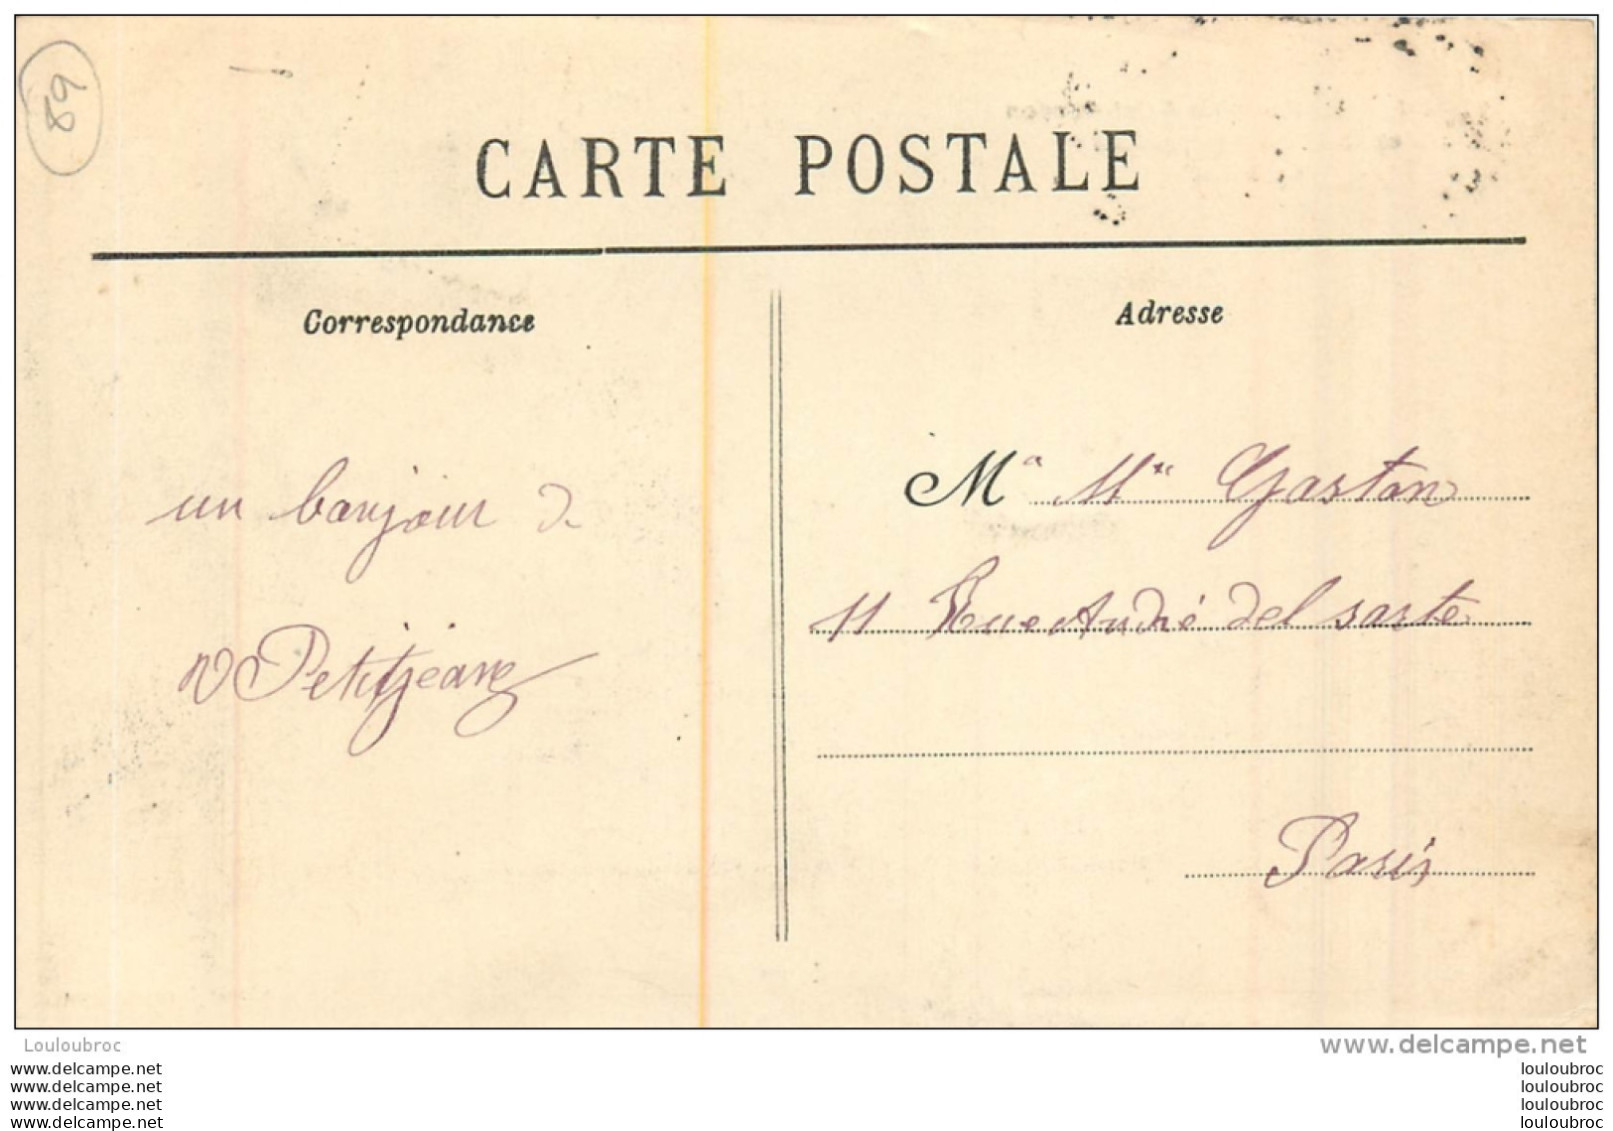 89
CARTE POSTALE
Correspondance
Adresse
un bonjour de
Petitjean
M Gaston
11 Rue André del sarte
Paris
Louloubroc
www.delcampe.net
www.delcampe.net
www.delcampe.net
www.delcampe.net
www.delcampe.net
louloubroc
louloubroc
louloubroc
louloubroc